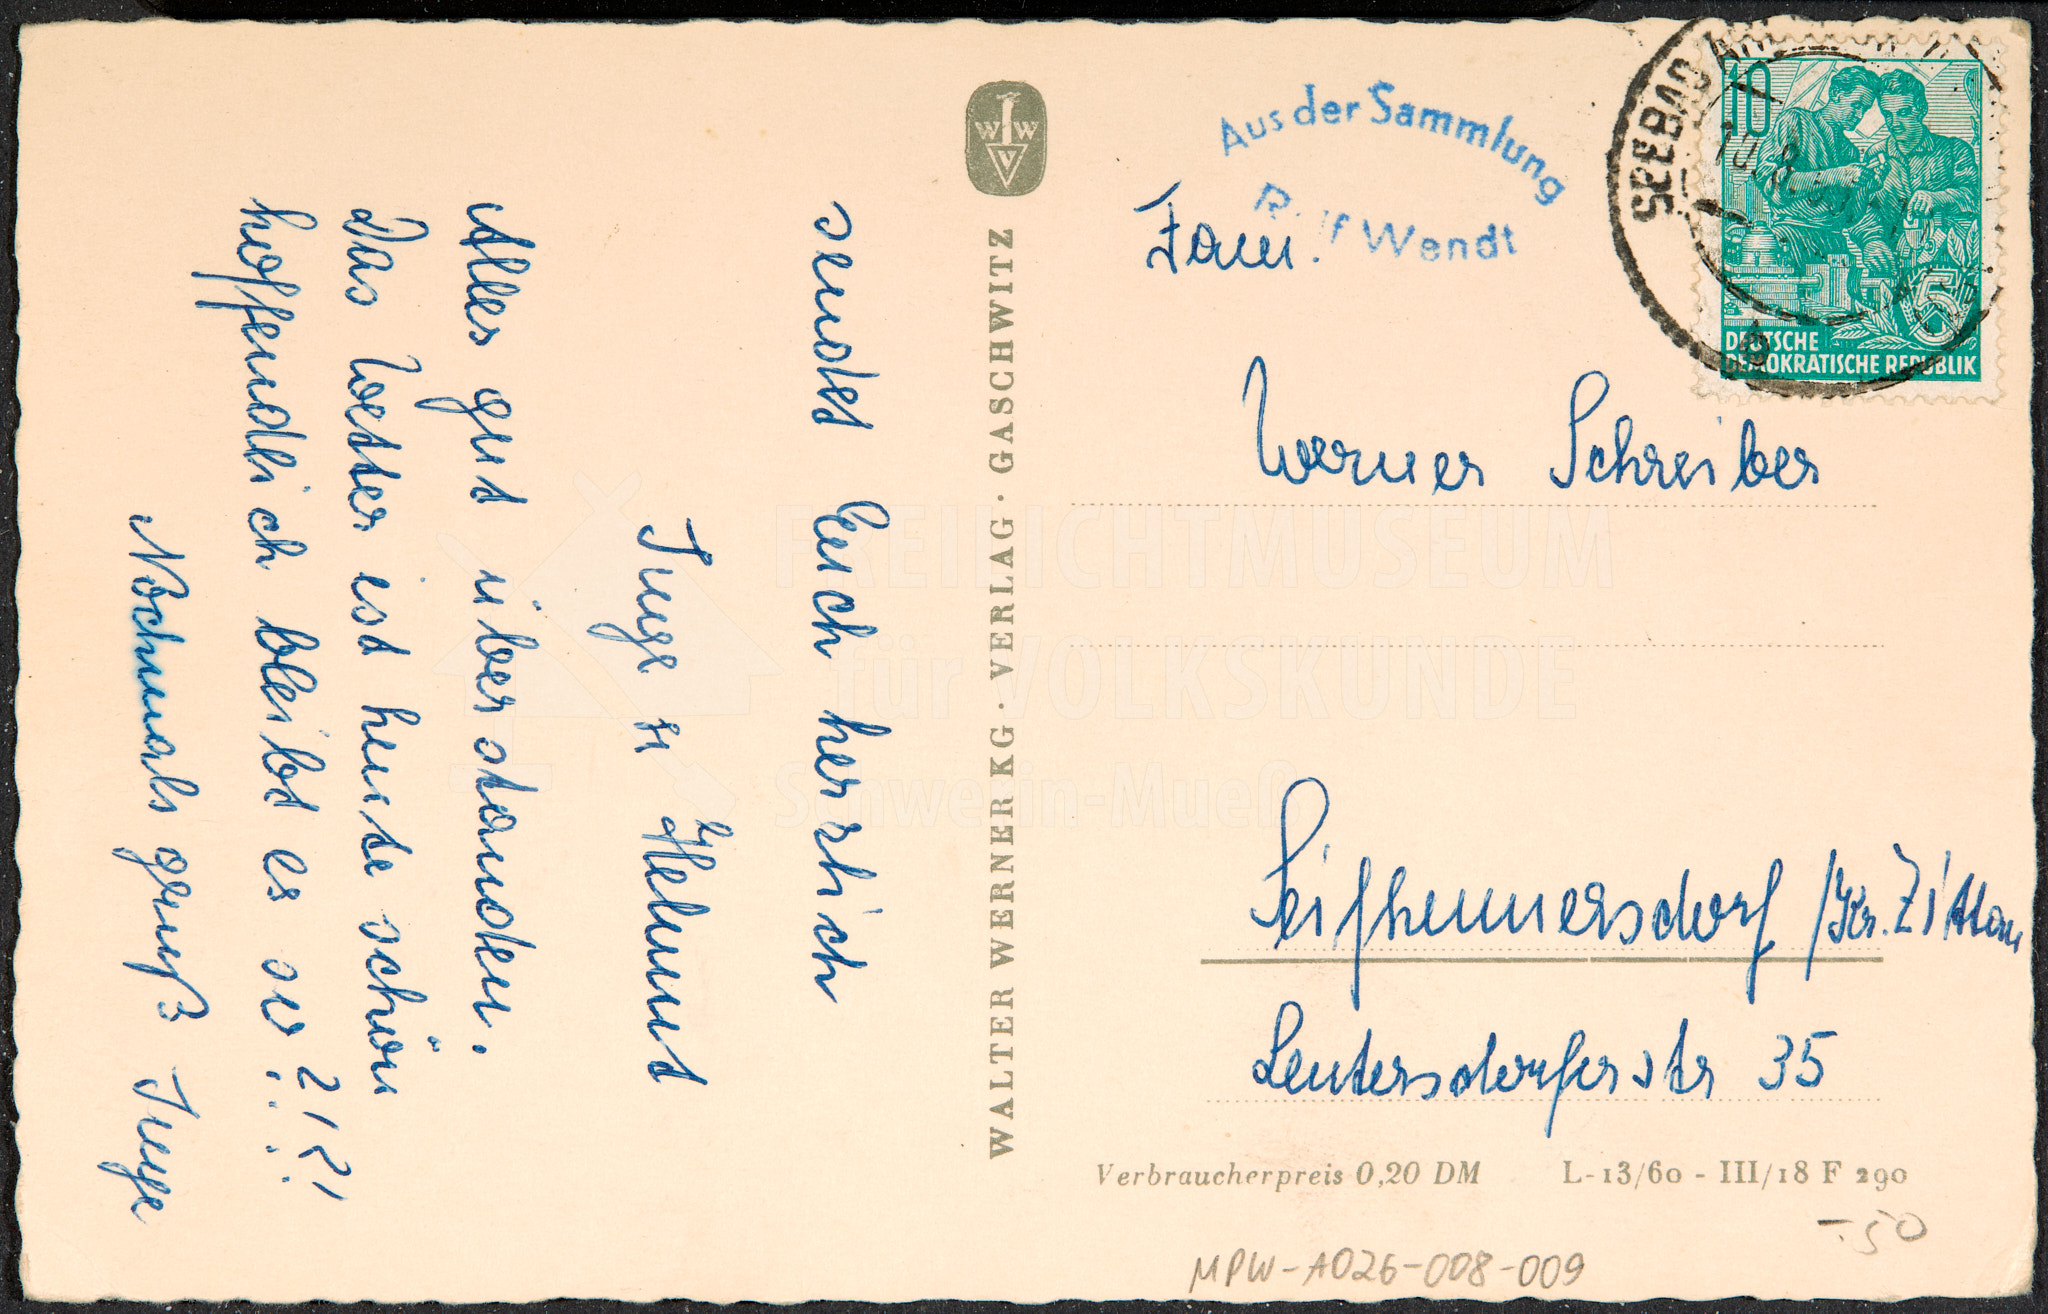 sendet Euch herzlich
Inge u Helmut
Alles gut überstanden.
Das Wetter ist heute schön
hoffendlich bleibt es so?!?!
Nochmals gruß Inge
WWV
WALTER WERNER KG · VERLAG · GASCHWITZ
Aus der Sammlung
Rolf Wendt
SEEBAD
10
5
DEUTSCHE
DEMOKRATISCHE REPUBLIK
Fam.
Werner Schreiber
Seifhennersdorf /Kr. Zittau
Leutersdorferstr 35
Verbraucherpreis 0,20 DM L-13/60 - III/18 F 290
-.50
MPW-A026-008-009
FREILICHTMUSEUM
für VOLKSKUNDE
Schwerin-Mueß